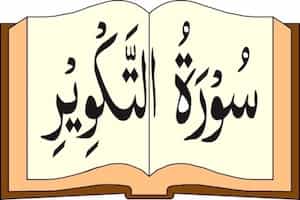 سُوْرَةُ التَّكْوِيْرِ